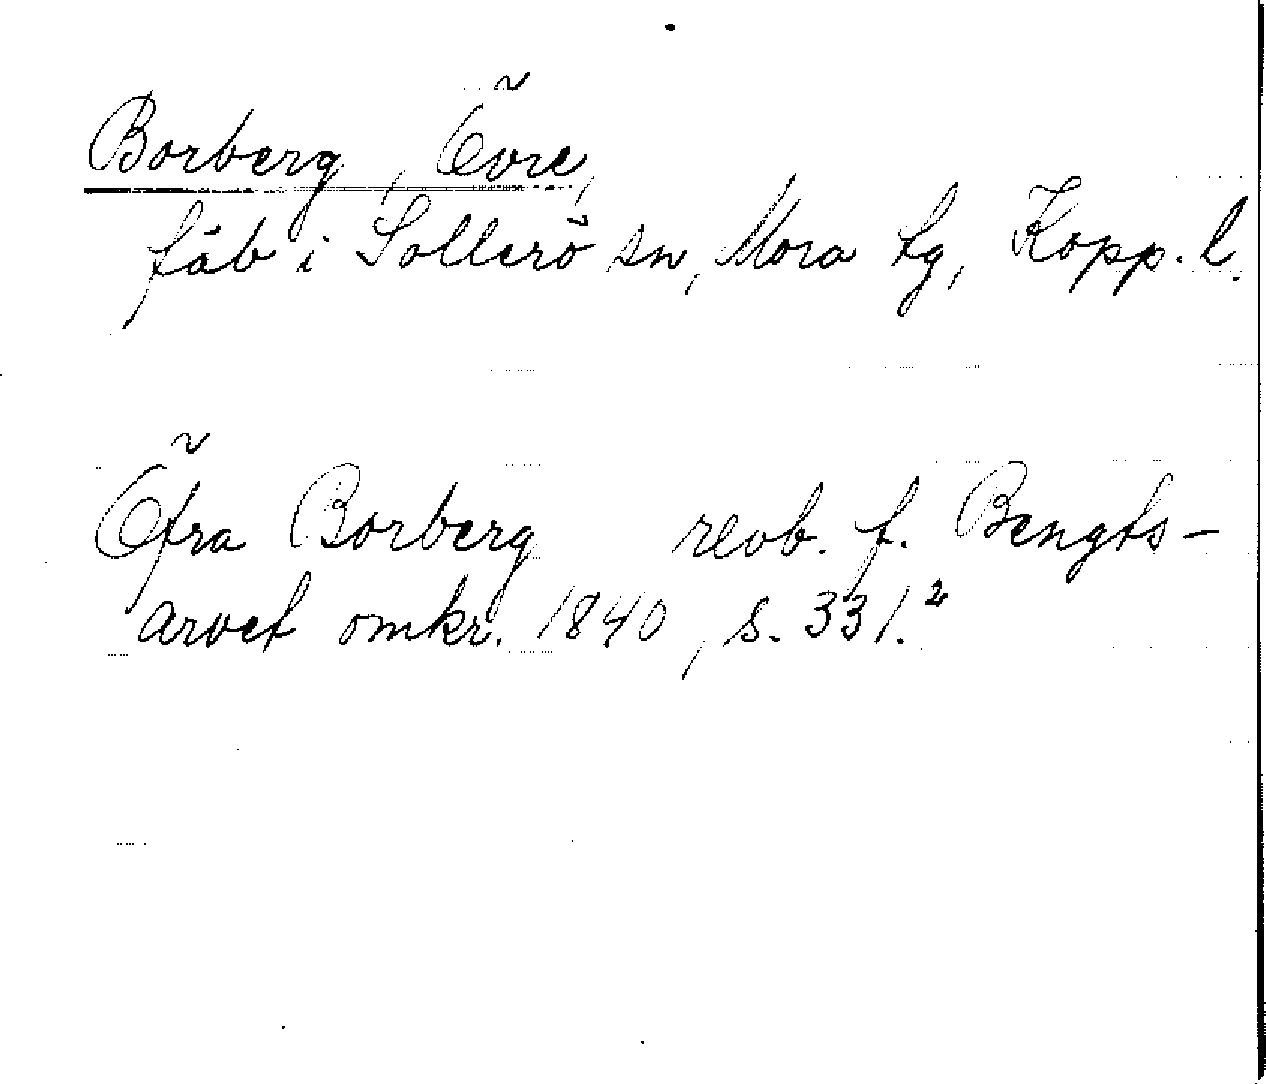 Borberg, Övre,
fäb i Sollerö sn, Mora tg, Kopp. l.
Öfra Borberg revb. f. Bengts-
arvet omkr. 1840, s. 331.²